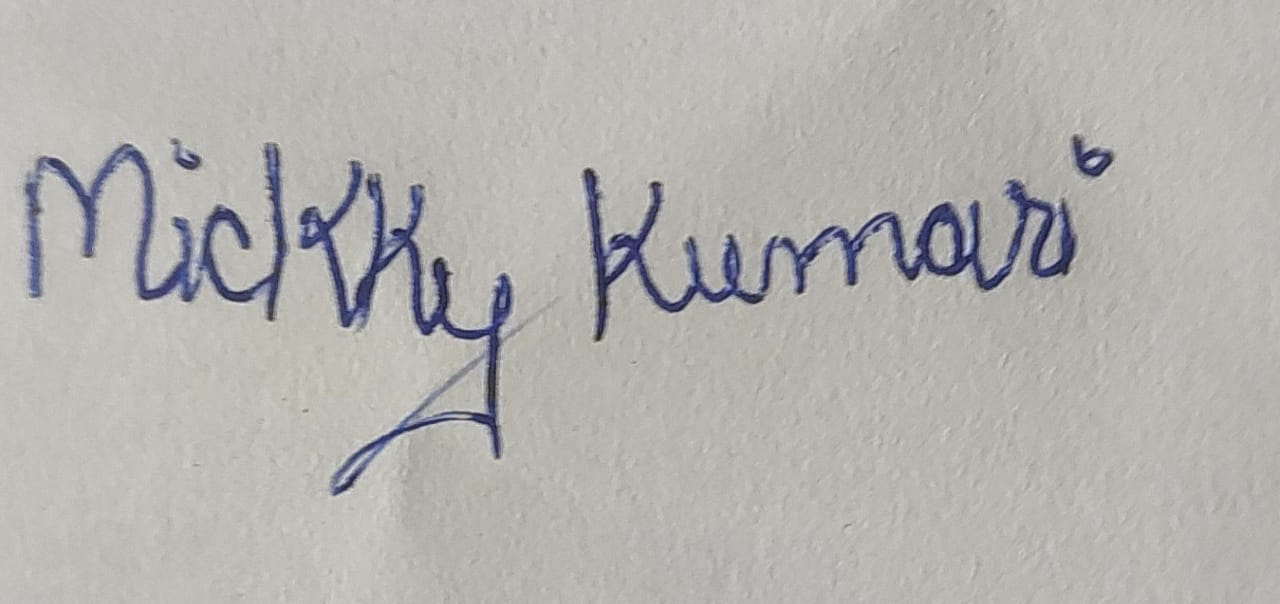 Mickky Kumari